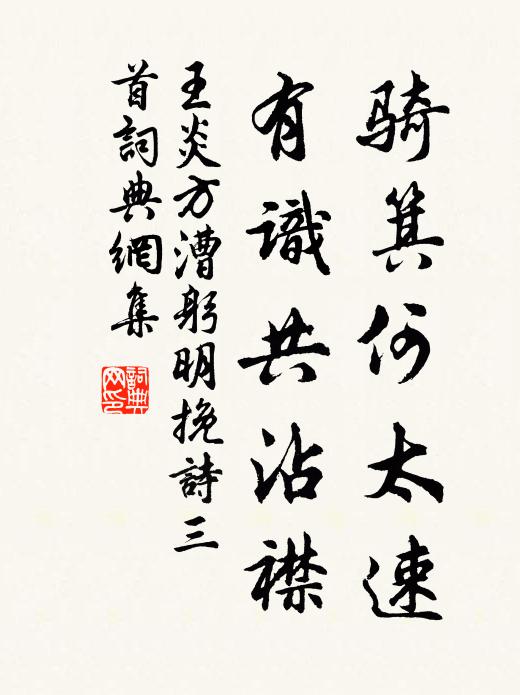 骑箕何太速
有識共沾襟
王炎方漕躬明挽詩三
首詞典網集
詞典网印